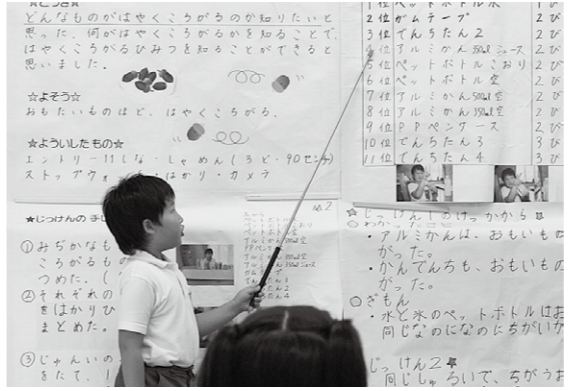 どんなものがはやくころがるのか知りたいと
思った。何がはやくころがるかを知ることで、
はやくころがるひみつを知ることができると
思いました。
☆よそう☆
おもたいものほど、はやくころがる。
☆よういしたもの☆
エントリー11しな・しゃめん(3ど・90センチ)
ストップウォ はかり・カメラ
☆じっけんの手
①みぢかなも
ころがるもの
つめた。(
②それぞれの
をはかりひ
まとめた。
③じゃんいの
をたて、
1位 ペットボトル水 1び
2位 ガムテープ 2び
3位 てんちたん2 2び
4位 アルミかん350mlジュース 2び
5位 ペットボトルこおり 2び
6位 ペットボトル空 2び
7位 アルミかん500ml空 2び
8位 アルミかん350ml空 2び
9位 PPペンケース 2び
10位 てんちたん3 3び
11位 てんちたん4 3び
No.2
☆じっけん1のけっかから
わかったこと
・アルミかんは、おもいもの
がった。
・かんでんちも、おもいもの
がった。
ぎもん
・水と氷のペットボトルはお
同じなのになのにちがいが
じっけん2
同じしゅるいで、ちがうお